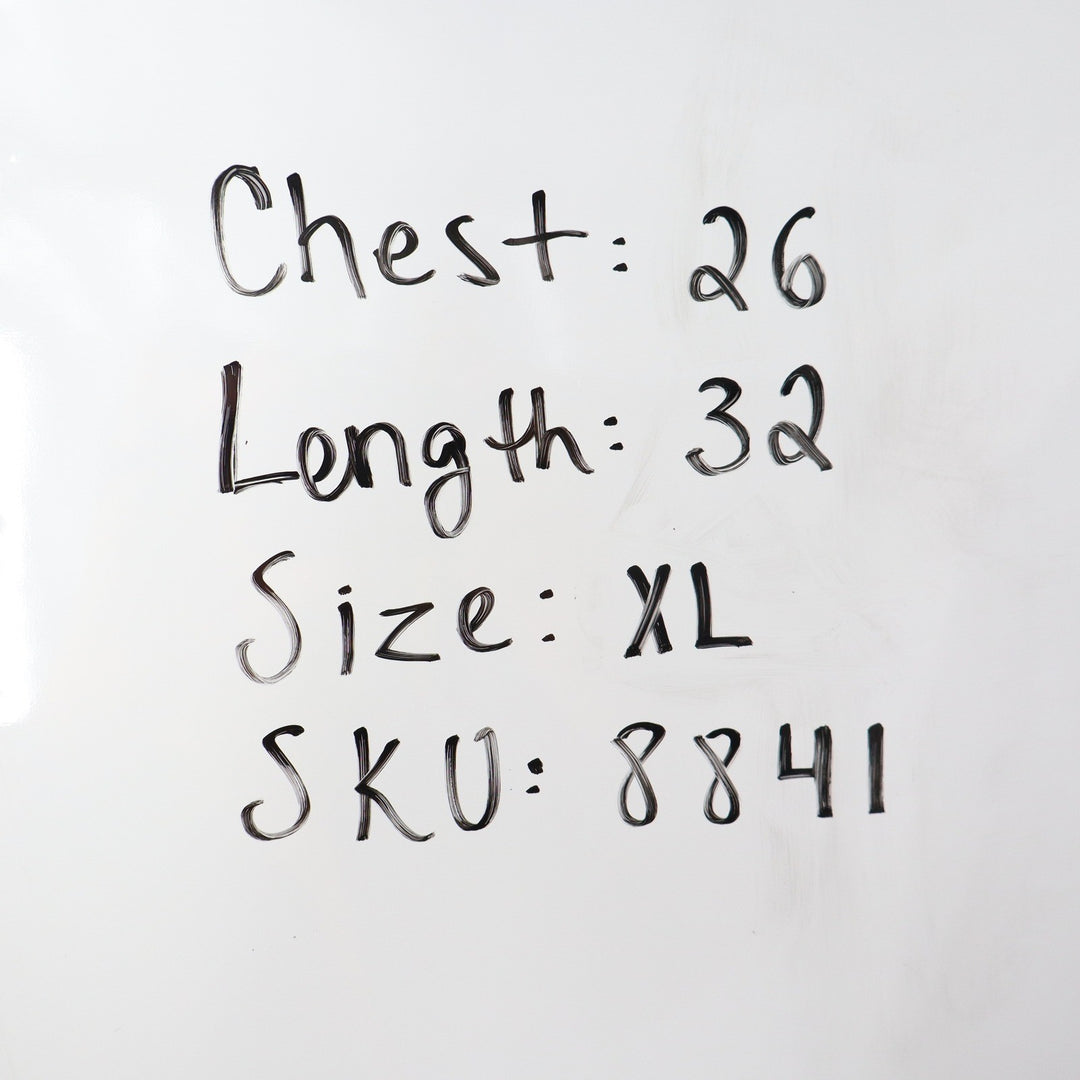 Chest: 26
Length: 32
Size: XL
SKU: 8841